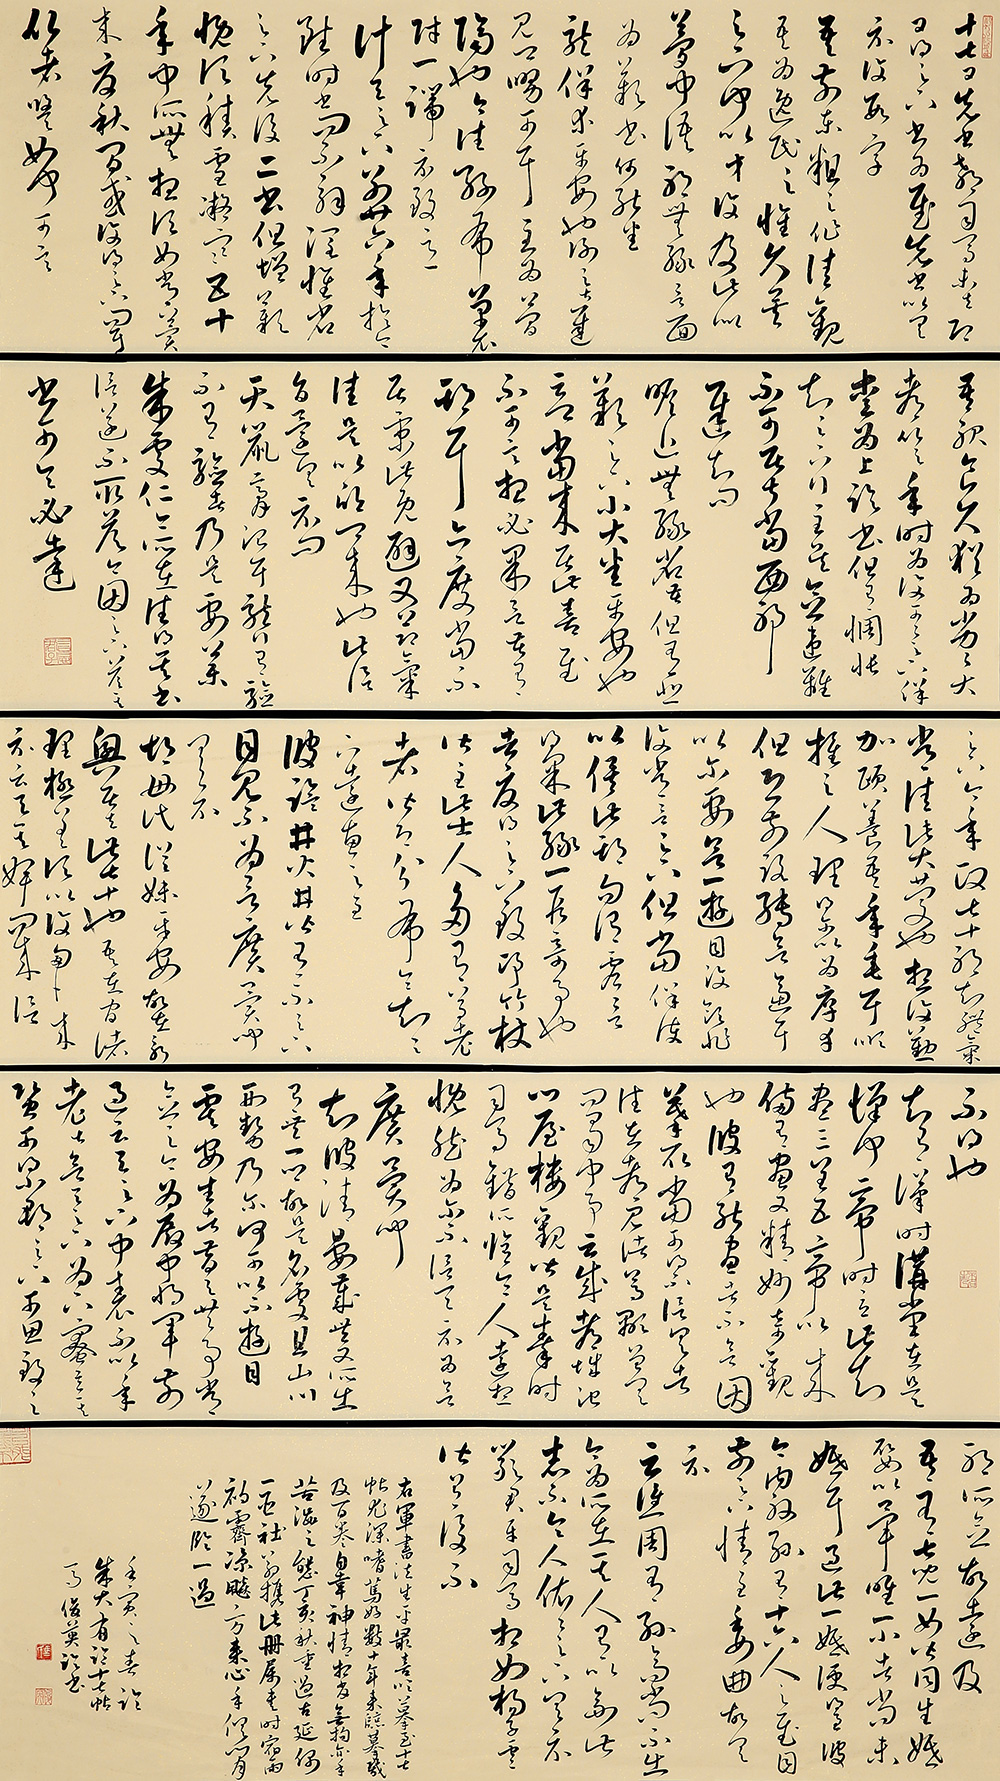 十七日先書郗司馬未去即
日得足下書為慰先書以具
示復數字
吾前東粗足作佳觀
吾為逸民之懷久矣
足下何以等復及此似
夢中語耶無緣言面
為歎書何能悉
龍保等平安也謝之甚遲
見卿舅可耳至為簡
隔也今往絲布單衣
財一端示致意
計與足下別廿六年於今
雖時書問不解闊懷省
足下先後二書但增歎
慨頃積雪凝寒五十
年中所無想頃如常冀
來夏秋間或復得足下問耳
比者悠悠如何可言
吾服食久猶為劣劣大
都比之年時為復可可足下保
愛為上臨書但有惆悵
知足下行至吳念違離
不可居叔當西耶
遲知問
瞻近無緣省苦但有悲
歎足下小大悉平安也
云卿當來居此喜遲
不可言想必果言苦有
期耳亦度卿當不
居京此既避又節氣
佳是以欣卿來也此信
旨還具示問
天鼠膏治耳聾有驗
不有驗者乃是要藥
朱處仁今所在往得其書
信遂不取答今因足下答其
書可令必達
足下今年政七十耶知體氣
常佳此大慶也想復勤
加頤養吾年垂耳順
推之人理得爾以為厚幸
但恐前路轉欲逼耳
以爾要欲一遊目汶領非
復常言足下但當保護
以俟此期勿謂虛言
得果此緣一段奇事也
去夏得足下致邛竹杖
皆至此士人多有尊老
者皆即分布令知足
下遠惠之至
彼鹽井火井皆有不足下
目見不為欲廣異聞
具示
胡母氏從妹平安故在永
興居去此七十也吾在官諸
理極差頃比復勿勿來
示云與其婢問來信
不得也
知有漢時講堂在是
漢何帝時立此知
畫三皇五帝以來
備有畫又精妙甚可觀
也彼有能畫者不欲因
摹取當可得不信具告
往在都見諸葛顒曾具
問蜀中事云成都城池
門屋樓觀皆是秦時
司馬錯所脩令人遠想
慨然為爾不信具示為欲
廣異聞
知彼清晏歲豐又所出
有無一鄉故是名處且山川
形勢乃爾何可以不遊目
虞安吉者昔與共事常
念之今為殿中將軍前
過云與足下中表不以年
老甚欲與足下為下寮意其
資可得小郡足下可思致之
耶所念故遠及
吾有七兒一女皆同生婚
娶以畢唯一小者尚未
婚耳過此一婚便得至彼
今內外孫有十六人足慰目
前足下情至委曲故具
示
云譙周有孫高尚不出
今為所在其人有以副此
志不令人依依足下具示
嚴君平司馬相如楊子雲
皆有後不
右軍書法生平最喜臨摹至十七
帖尤深嗜篤好數十年來臨摹幾
及百卷自幸神情相發
苦海之態丁亥秋重過古延
一區社前攜此冊屬書時宿雨
初霽涼颸方來心手俱閒
遂臨一過
壬寅之春臨
朱大有臨十七帖
馬俊英臨書